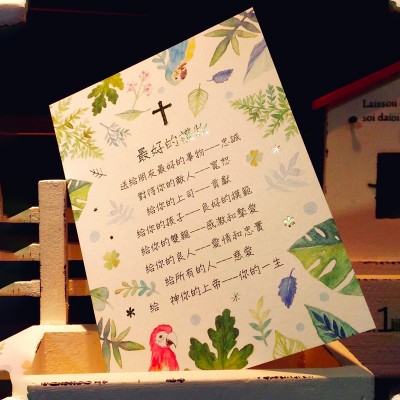 最好的禮物
送給朋友最好的事物──忠誠
對待你的敵人──寬恕
給你的上司──貢獻
給你的孩子──良好的模範
給你的雙親──感激和摯愛
給你的良人──愛情和忠實
給所有的人──慈愛
給 神你的上帝──你的一生
Laissou
soi daioi